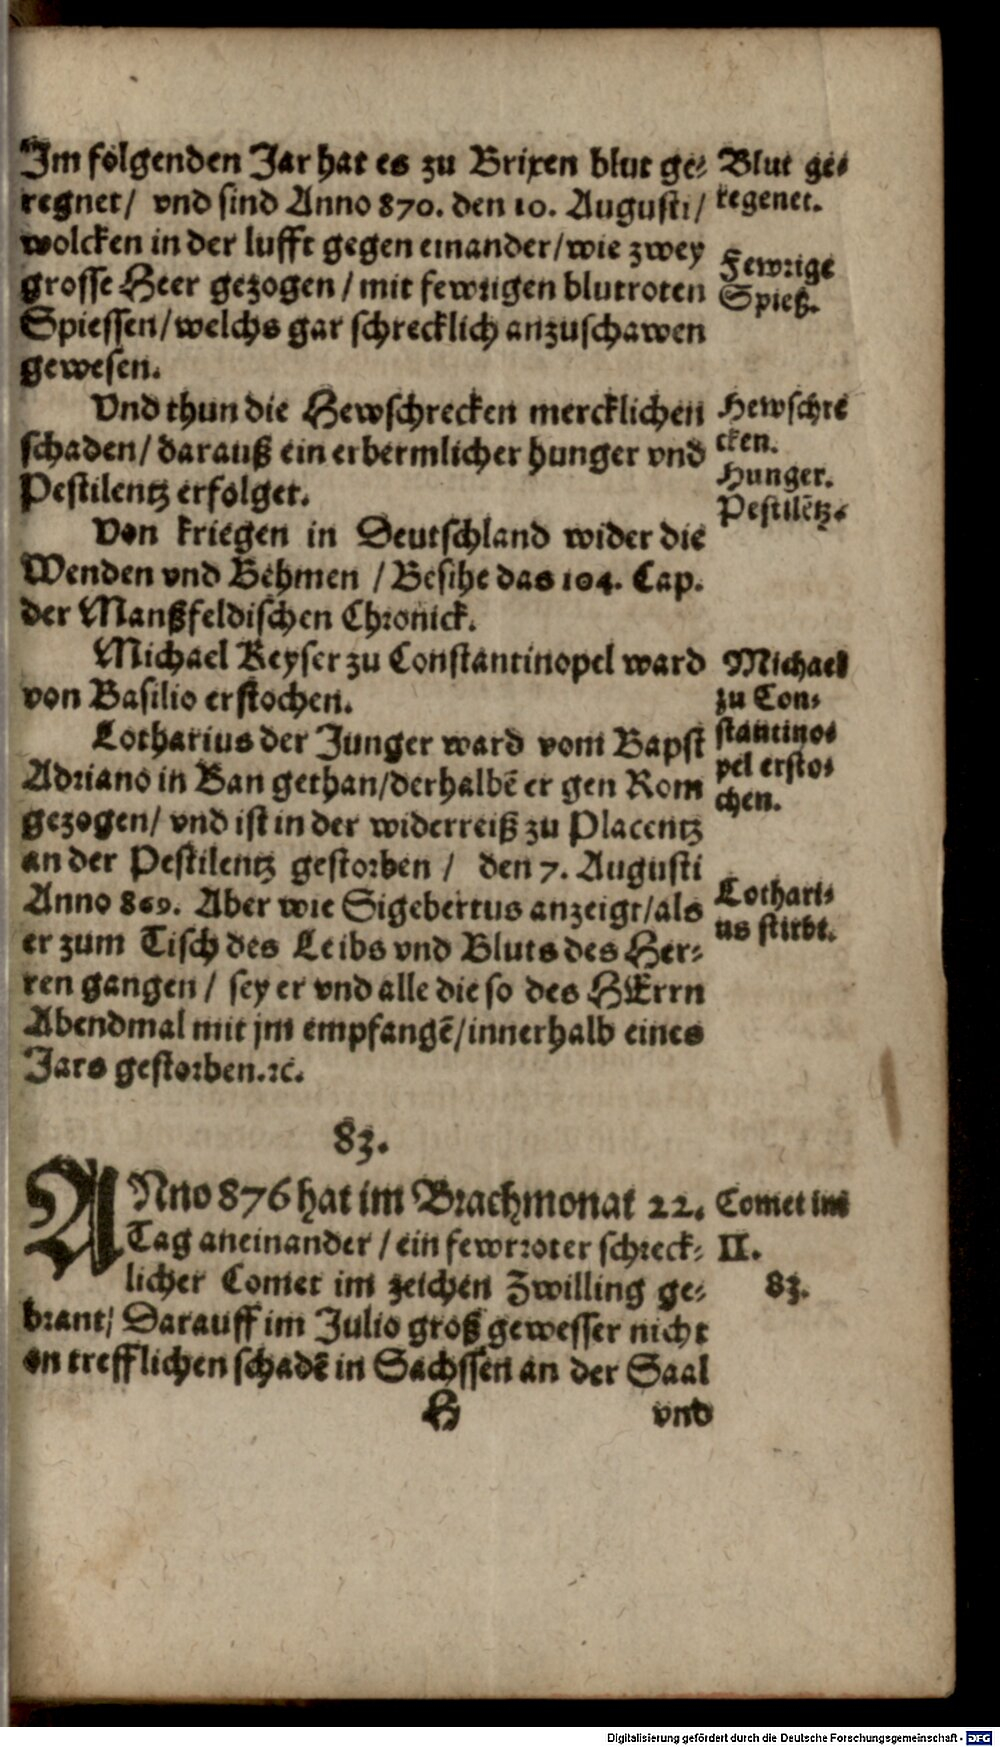 Im folgenden Jar hat es zu Brixen blut ge-
regnet/ vnd sind Anno 870. den 10. Augusti/
wolcken in der lufft gegen einander/wie zwey
grosse Heer gezogen / mit fewrigen blutroten
Spiessen/welchs gar schrecklich anzuschawen
gewesen.
Vnd thun die Hewschrecken mercklichen
schaden/darauß ein erbermlicher hunger vnd
Pestilentz erfolget.
Von kriegen in Deutschland wider die
Wenden vnd Behmen / Besihe das 104. Cap.
der Manßfeldischen Chronick.
Michael Keyser zu Constantinopel ward
von Basilio erstochen.
Lotharius der Junger ward vom Bapst
Adriano in Ban gethan/derhalbē er gen Rom
gezogen/ vnd ist in der widerreiß zu Placentz
an der Pestilentz gestorben / den 7. Augusti
Anno 869. Aber wie Sigebertus anzeigt/als
er zum Tisch des Leibs vnd Bluts des Her-
ren gangen / sey er vnd alle die so des HErrn
Abendmal mit jm empfangē/innerhalb eines
Jars gestorben.ꝛc.
Blut ge-
regenet.
Fewrige
Spieß.
Hewschre
cken.
Hunger.
Pestilētz.
Michael
zu Con-
stantino-
pel ersto-
chen.
Lothari-
us stirbt.
83.
ANno 876 hat im Brachmonat 22.
Tag aneinander / ein fewrroter schreck-
licher Comet im zeichen Zwilling ge-
brant/ Darauff im Julio groß gewesser nicht
on trefflichen schadē in Sachssen an der Saal
H vnd
Comet im
II.
83.
Digitalisierung gefördert durch die Deutsche Forschungsgemeinschaft - DFG